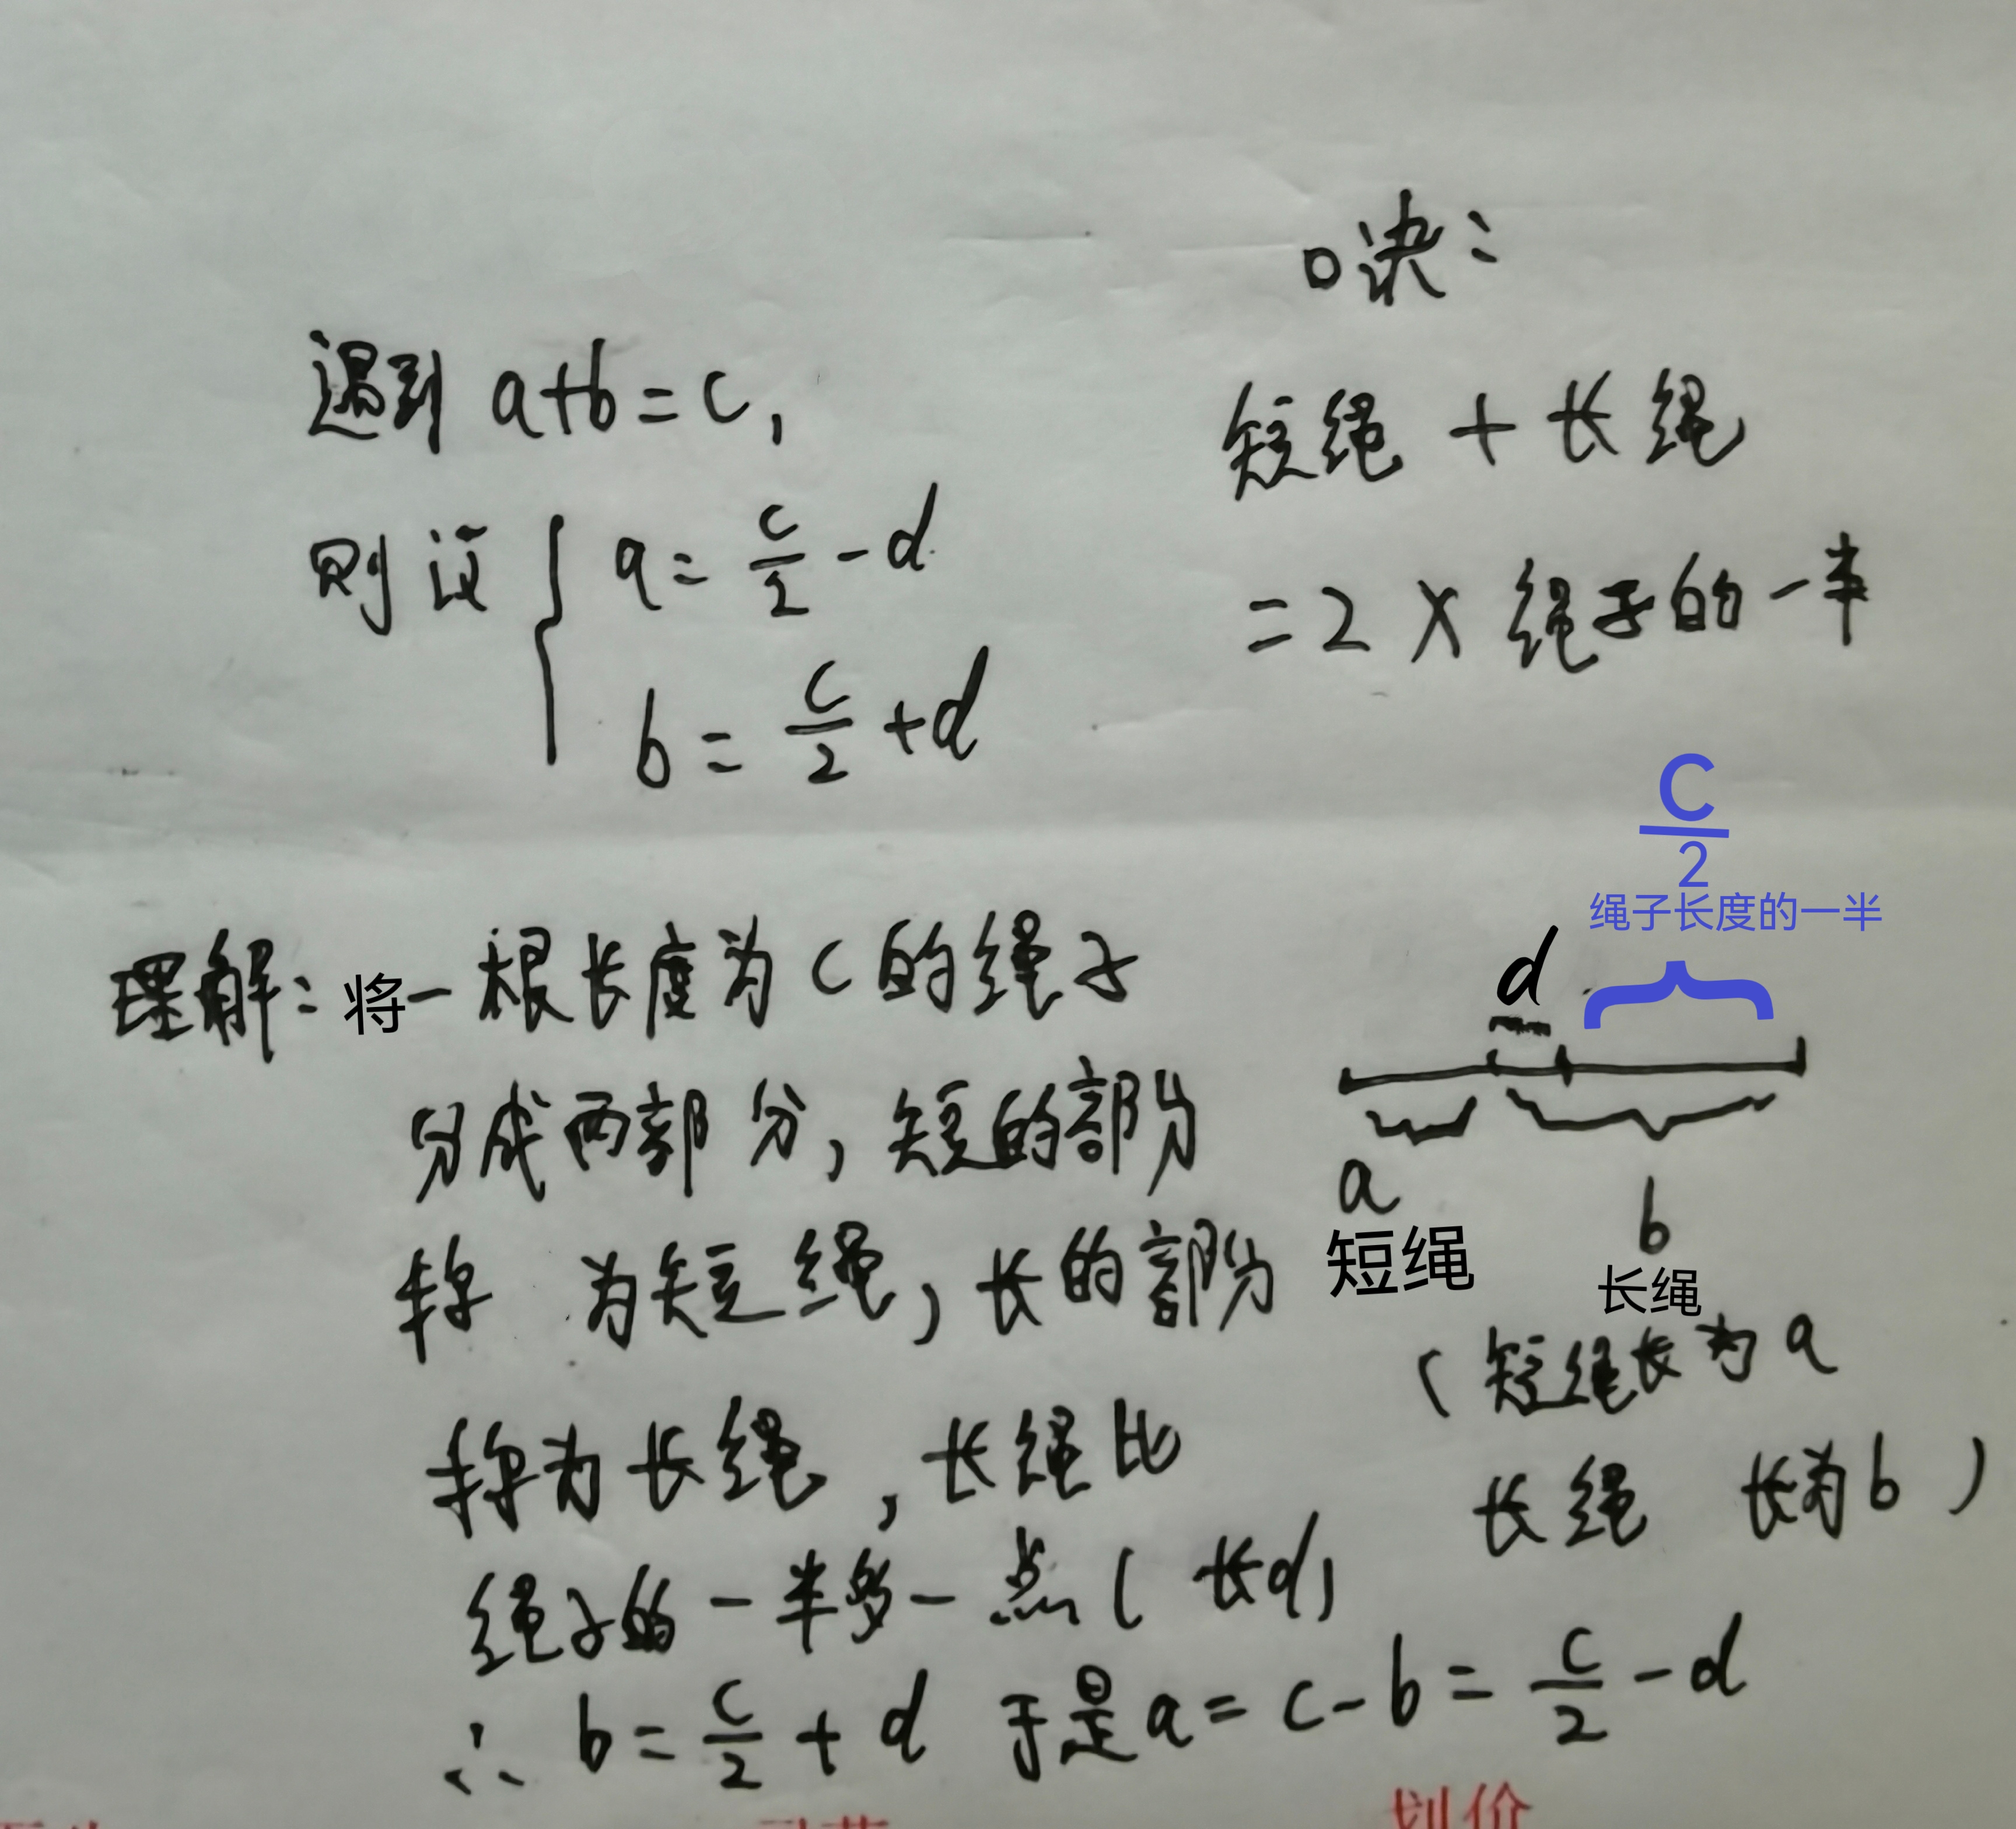 口诀：
遇到 a+b=c,
短绳 + 长绳
则设 { a = c/2 - d
= 2 × 绳子的一半
b = c/2 + d
C/2
绳子长度的一半
d
理解：将一根长度为 c 的绳子
分成两部分，短的部分
a
b
称 为短绳，长的部分
短绳
长绳
（短绳长为 a
称为长绳，长绳比
长绳 长为 b）
绳子的一半多一点（长d）
∴ b = c/2 + d 于是 a = c - b = c/2 - d
划价